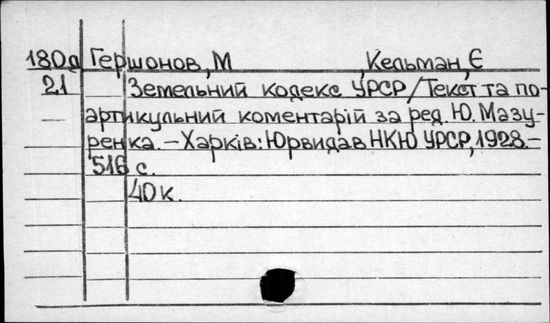 180а Гершонов, М Кельман, Є
21 Земельний кодекс УРСР/Текст та по-
артикульний коментарій за ред. Ю. Мазу-
ренка. – Харків: Юрвидав НКЮ УРСР, 1928.–
516 с.
40 к.